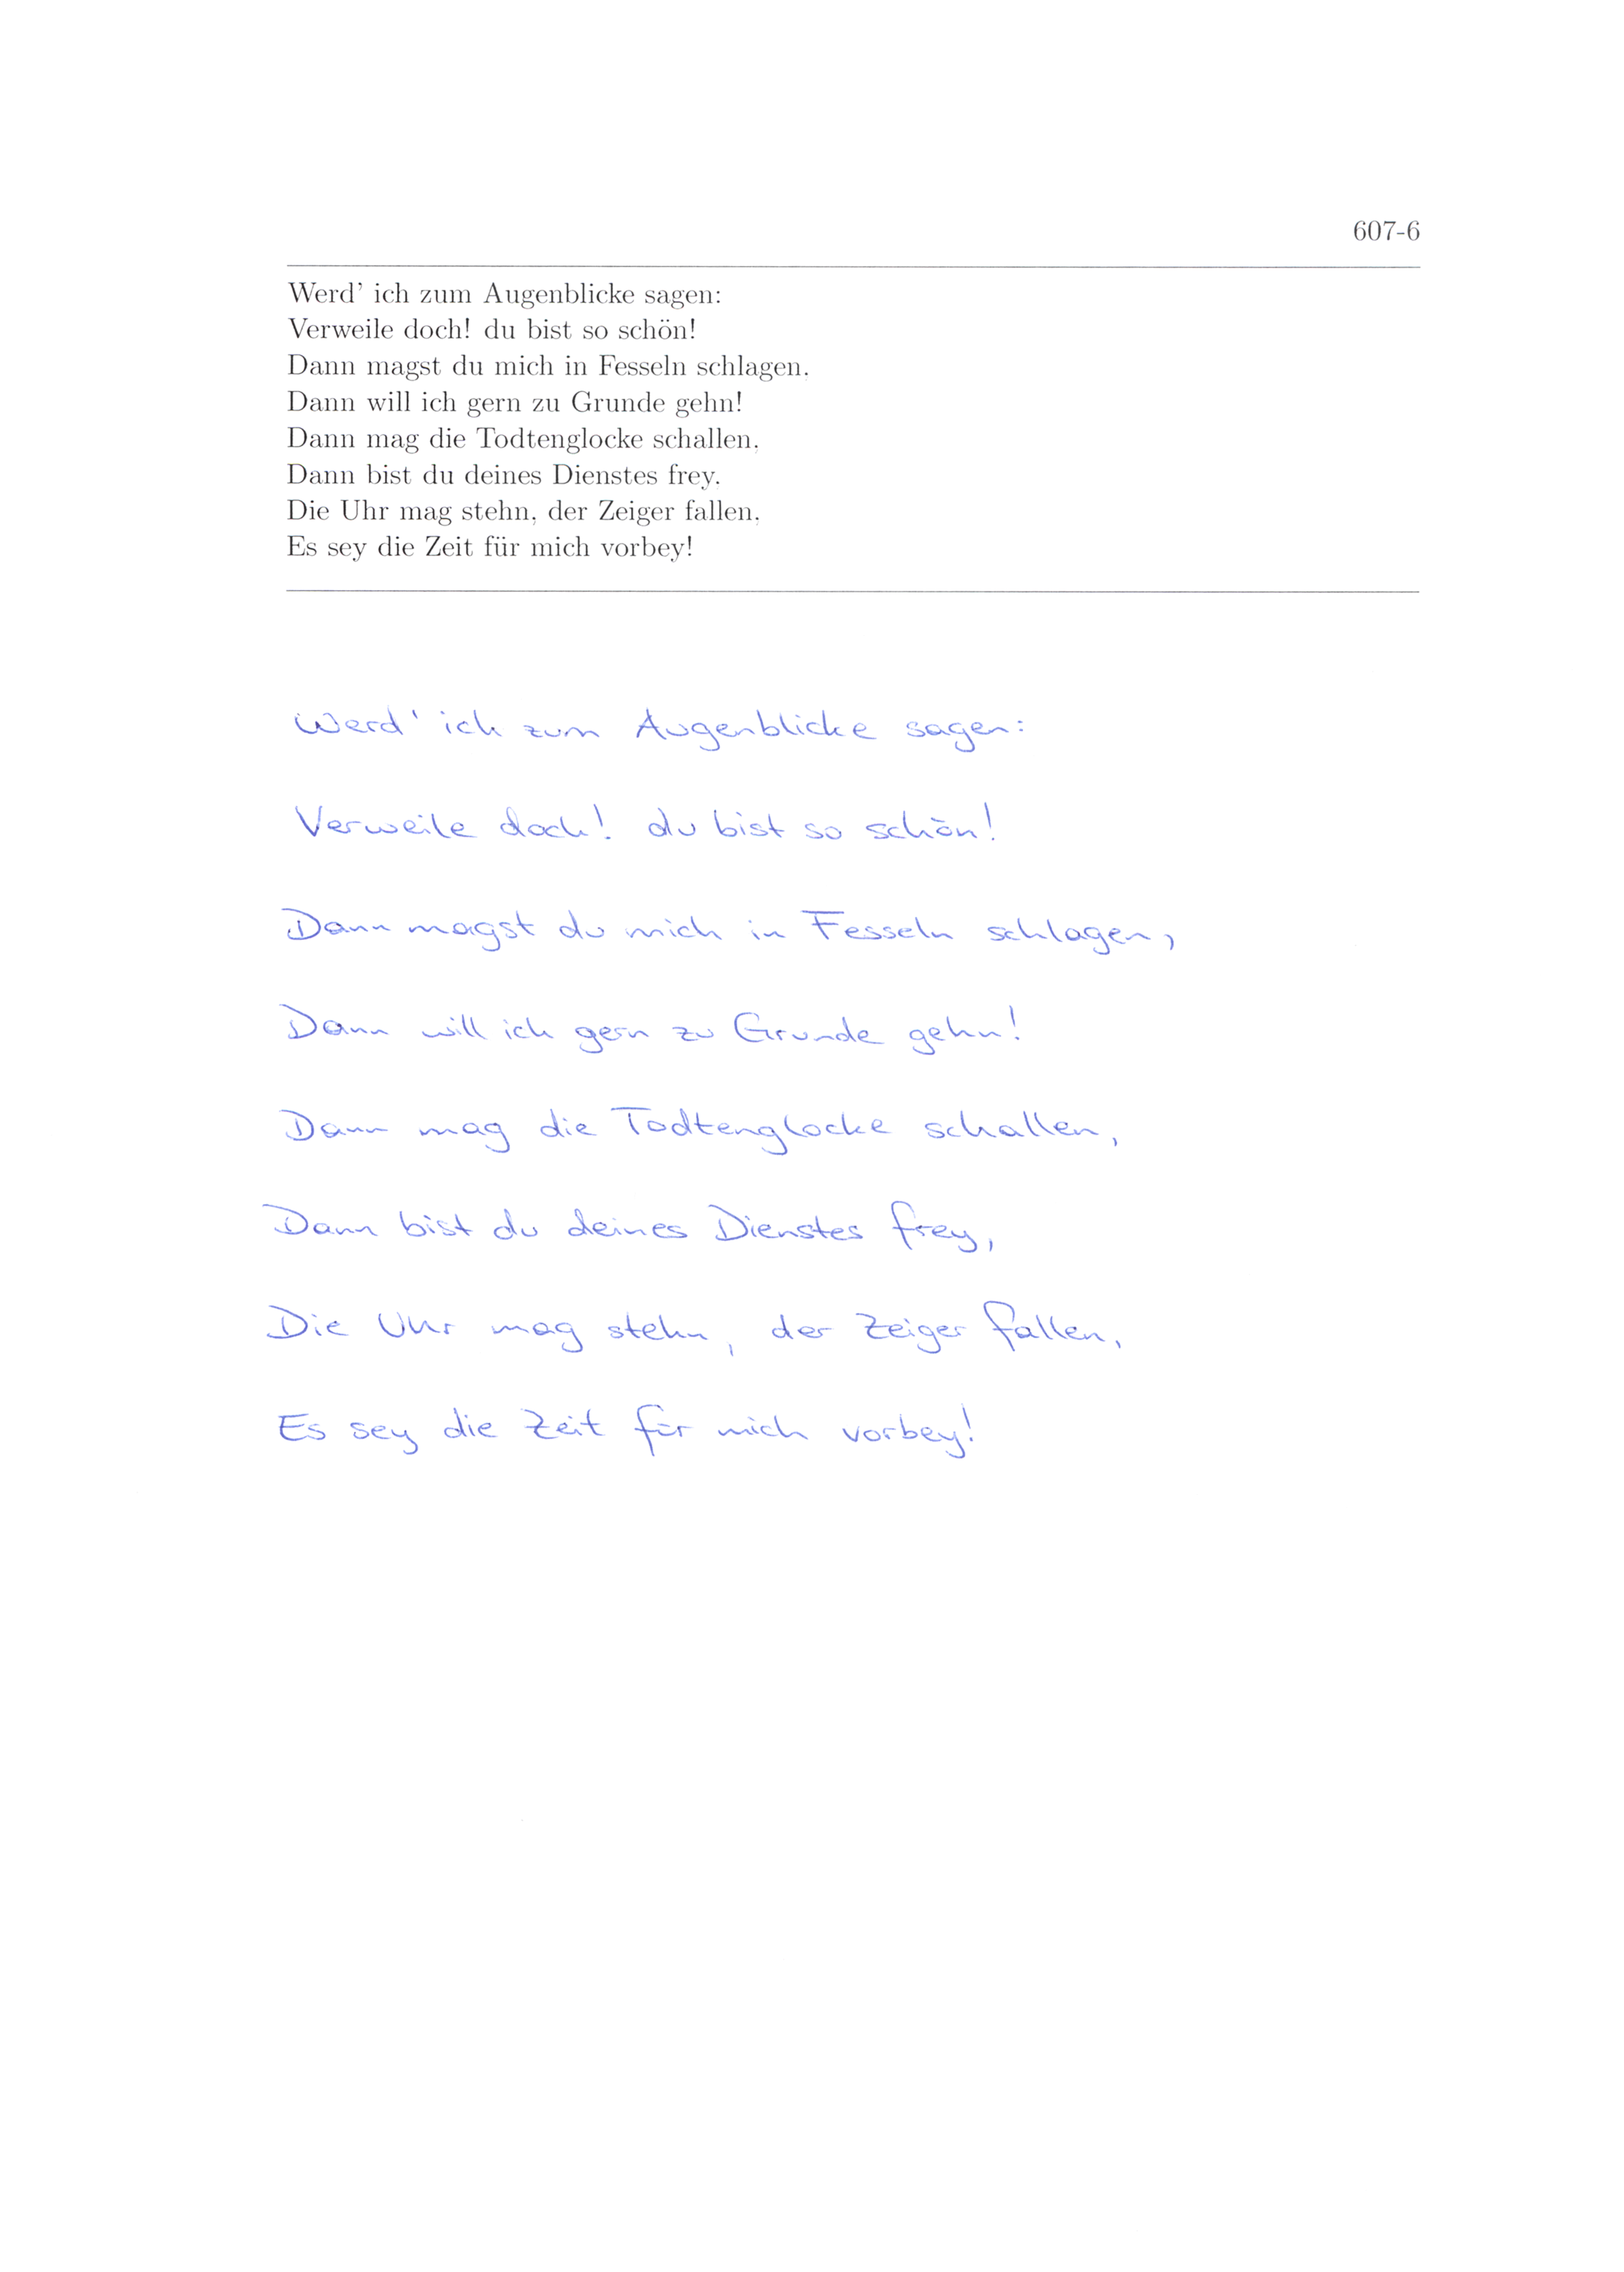 607-6
Werd' ich zum Augenblicke sagen:
Verweile doch! du bist so schön!
Dann magst du mich in Fesseln schlagen,
Dann will ich gern zu Grunde gehn!
Dann mag die Todtenglocke schallen,
Dann bist du deines Dienstes frey,
Die Uhr mag stehn, der Zeiger fallen,
Es sey die Zeit für mich vorbey!
Werd' ich zum Augenblicke sagen:
Verweile doch! du bist so schön!
Dann magst du mich in Fesseln schlagen,
Dann will ich gern zu Grunde gehn!
Dann mag die Todtenglocke schallen,
Dann bist du deines Dienstes frey,
Die Uhr mag stehn, der Zeiger fallen,
Es sey die Zeit für mich vorbey!